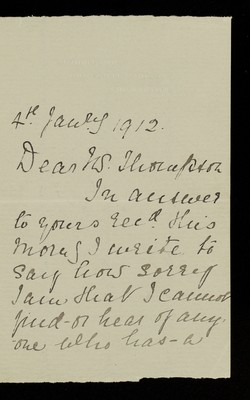 4th Jan'y 1912.
Dear Mr. Thompson
In answer
to yours recd. this
morng I write to
say how sorry
I am that I cannot
find-or hear of any
one who has-a